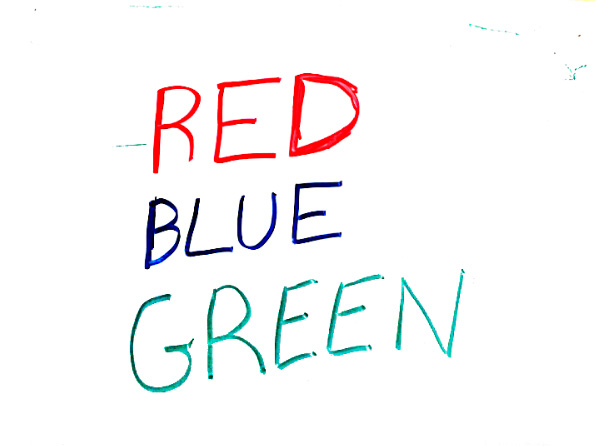 RED
BLUE
GREEN